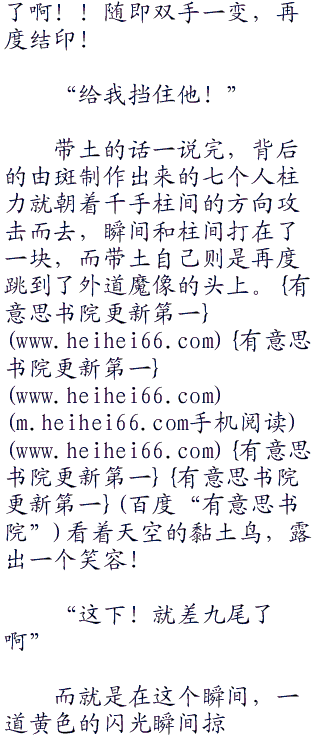 了啊！！随即双手一变，再
度结印！
“给我挡住他！”
带土的话一说完，背后
的由斑制作出来的七个人柱
力就朝着千手柱间的方向攻
击而去，瞬间和柱间打在了
一块，而带土自己则是再度
跳到了外道魔像的头上。{有
意思书院更新第一}
(www.heihei66.com){有意思
书院更新第一}
(www.heihei66.com)
(m.heihei66.com手机阅读)
(www.heihei66.com){有意思
书院更新第一}{有意思书院
更新第一}(百度“有意思书
院”)看着天空的黏土鸟，露
出一个笑容！
“这下！就差九尾了
啊”
而就是在这个瞬间，一
道黄色的闪光瞬间掠